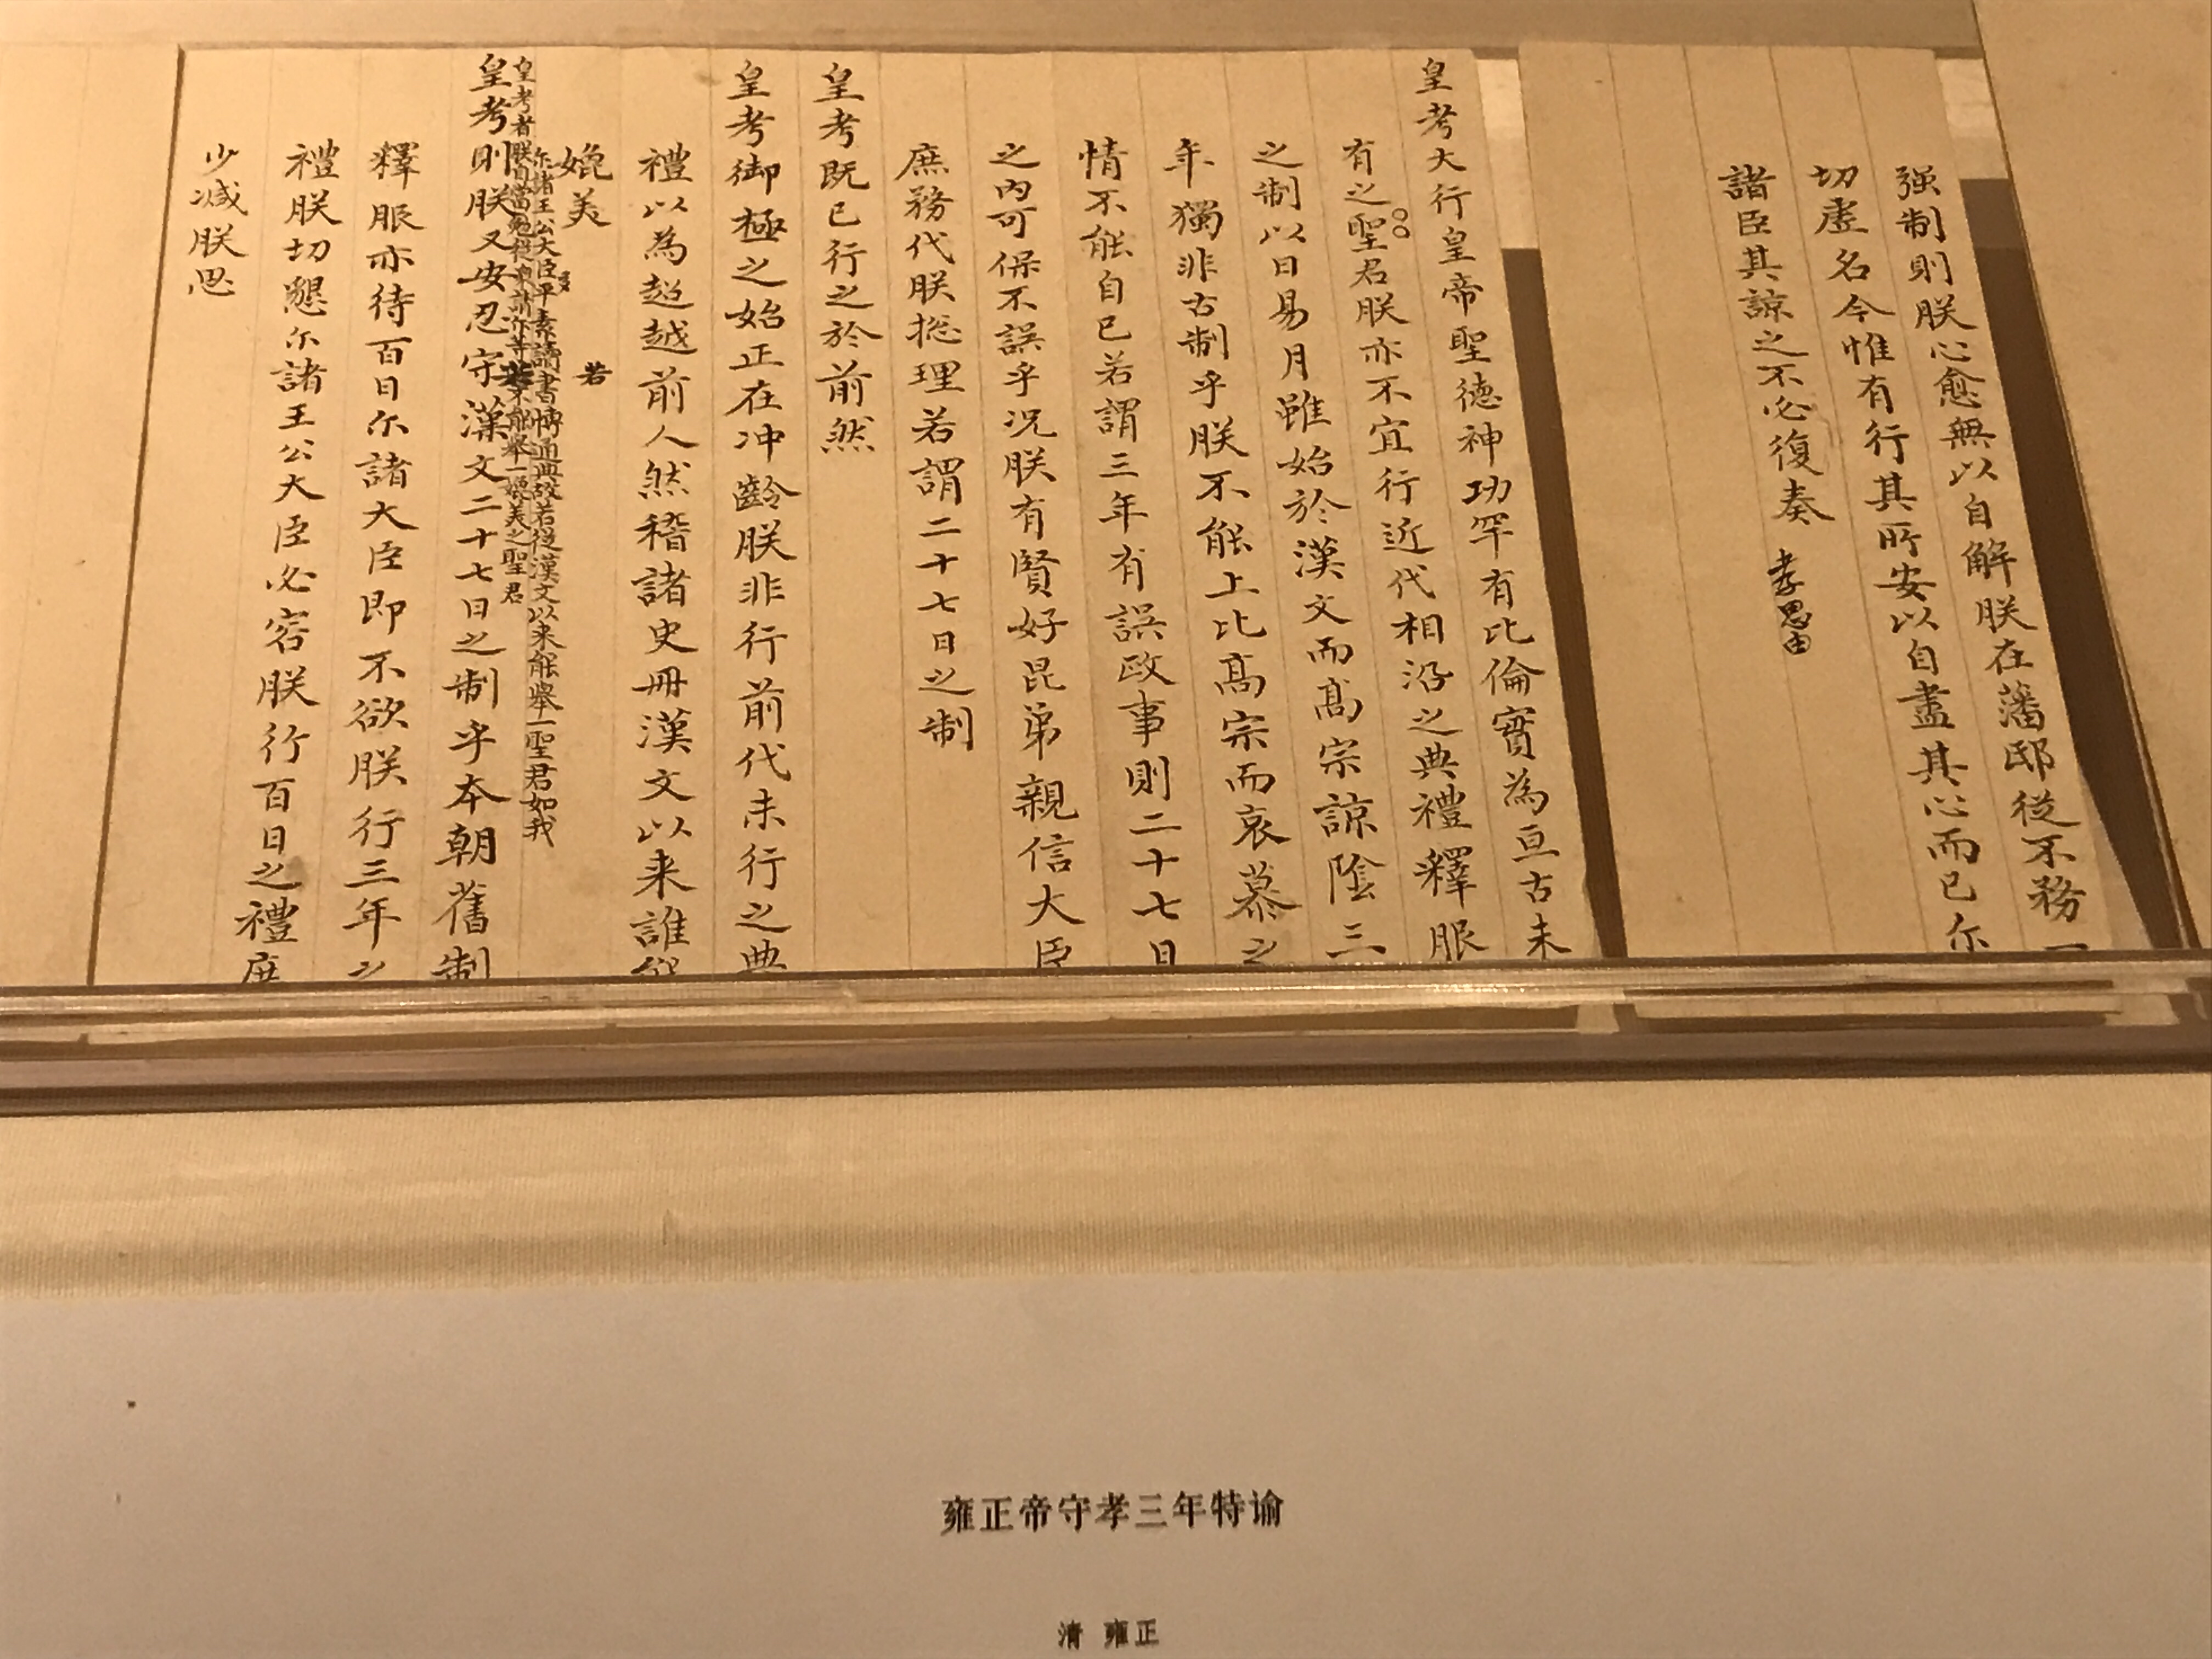 强制則朕心愈無以自解朕在藩邸從不務一
切虛名今惟有行其所安以自盡其心而已尔
諸臣其諒之不必復奏 孝思由
皇考大行皇帝聖德神功罕有比倫實為亘古未
有之聖君朕亦不宜行近代相沿之典禮釋服
之制以日易月雖始於漢文而髙宗諒陰三
年獨非古制乎朕不能上比髙宗而哀慕之
情不能自已若謂三年有誤政事則二十七日
之内可保不誤乎况朕有賢好昆弟親信大臣
庶務代朕捴理若謂二十七日之制
皇考既已行之於前然
皇考御極之始正在冲齡朕非行前代未行之典
禮以為超越前人然稽諸史冊漢文以来誰能
媲美 若
尔諸王公大臣平素讀書博通典故若從漢文以来能舉一聖君如我
皇考者朕自當勉從衆請尔等若不能舉一媲美之聖君
皇考則朕又安忍守漢文二十七日之制乎本朝舊制
釋服亦待百日尔諸大臣即不欲朕行三年之
禮朕切懇尔諸王公大臣必容朕行百日之禮庶
少減朕思
雍正帝守孝三年特谕
清 雍正